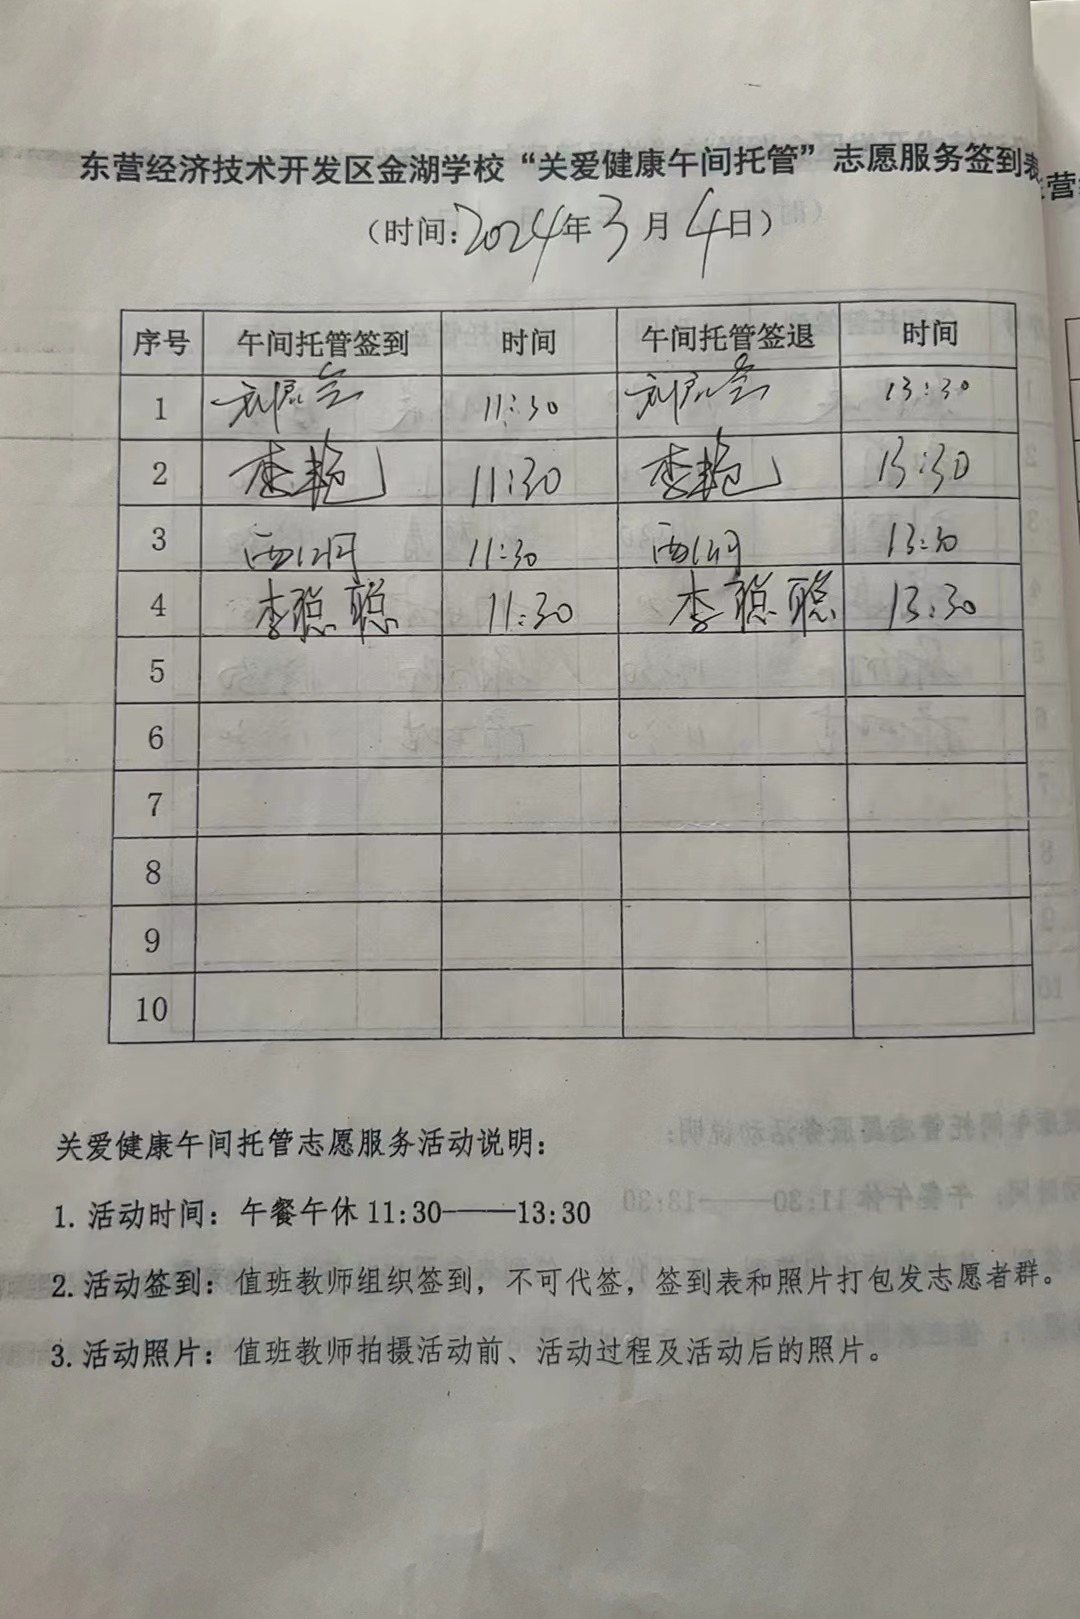 东营经济技术开发区金湖学校“关爱健康午间托管”志愿服务签到表
（时间：2024年3月4日）
序号 午间托管签到 时间 午间托管签退 时间
1 11:30 13:30
2 李艳 11:30 李艳 13:30
3 11:30 13:30
4 李聪聪 11:30 李聪聪 13:30
5
6
7
8
9
10
关爱健康午间托管志愿服务活动说明：
1. 活动时间：午餐午休 11:30——13:30
2. 活动签到：值班教师组织签到，不可代签，签到表和照片打包发志愿者群。
3. 活动照片：值班教师拍摄活动前、活动过程及活动后的照片。